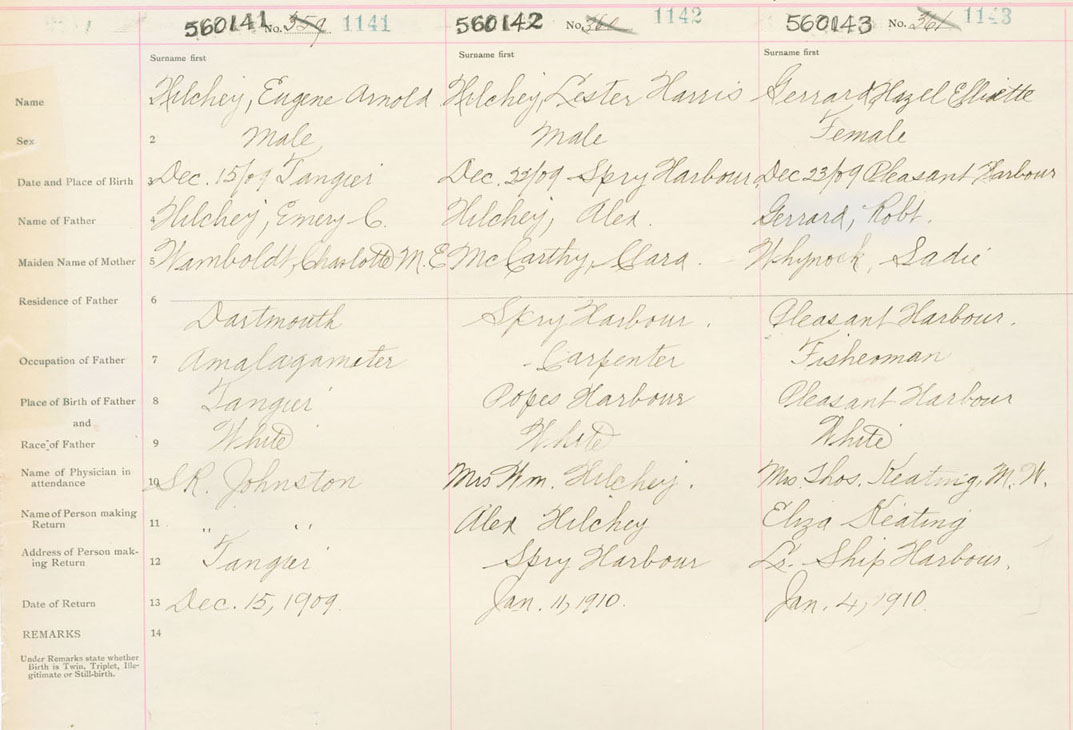 560141 No. 359 1141 560142 No. 360 1142 560143 No. 361 1143
Surname first Surname first Surname first
Name Hilchey, Eugene Arnold Hilchey, Lester Harris Gerrard, Hazel
Sex 2 Male Male Female
Date and Place of Birth 3 Dec. 15/09 Tangier Dec. 23/09 Spry Harbour Dec 23/09 Pleasant Harbour
Name of Father 4 Hilchey, Emery C. Hilchey, Alex. Gerrard, Robt.
Maiden Name of Mother 5 Wamboldt, Charlotte M. E McCarthy, Clara. Whynock, Sadie
Residence of Father 6
Dartmouth Spry Harbour. Pleasant Harbour.
Occupation of Father 7 Amalagamater Carpenter Fisherman
Place of Birth of Father 8 Tangier Popes Harbour Pleasant Harbour
and
Race of Father 9 White White White
Name of Physician in
attendance 10 S R. Johnston Mrs Wm. Hilchey. Mrs. Thos. Keating, M. W.
Name of Person making
Return 11 " " Alex Hilchey Eliza Keating
Address of Person mak-
ing Return 12 Tangier Spry Harbour Ship Harbour.
Date of Return 13 Dec. 15, 1909. Jan. 11, 1910. Jan. 4, 1910.
REMARKS 14
Under Remarks state whether
Birth is Twin, Triplet, Ille-
gitimate or Still-birth.